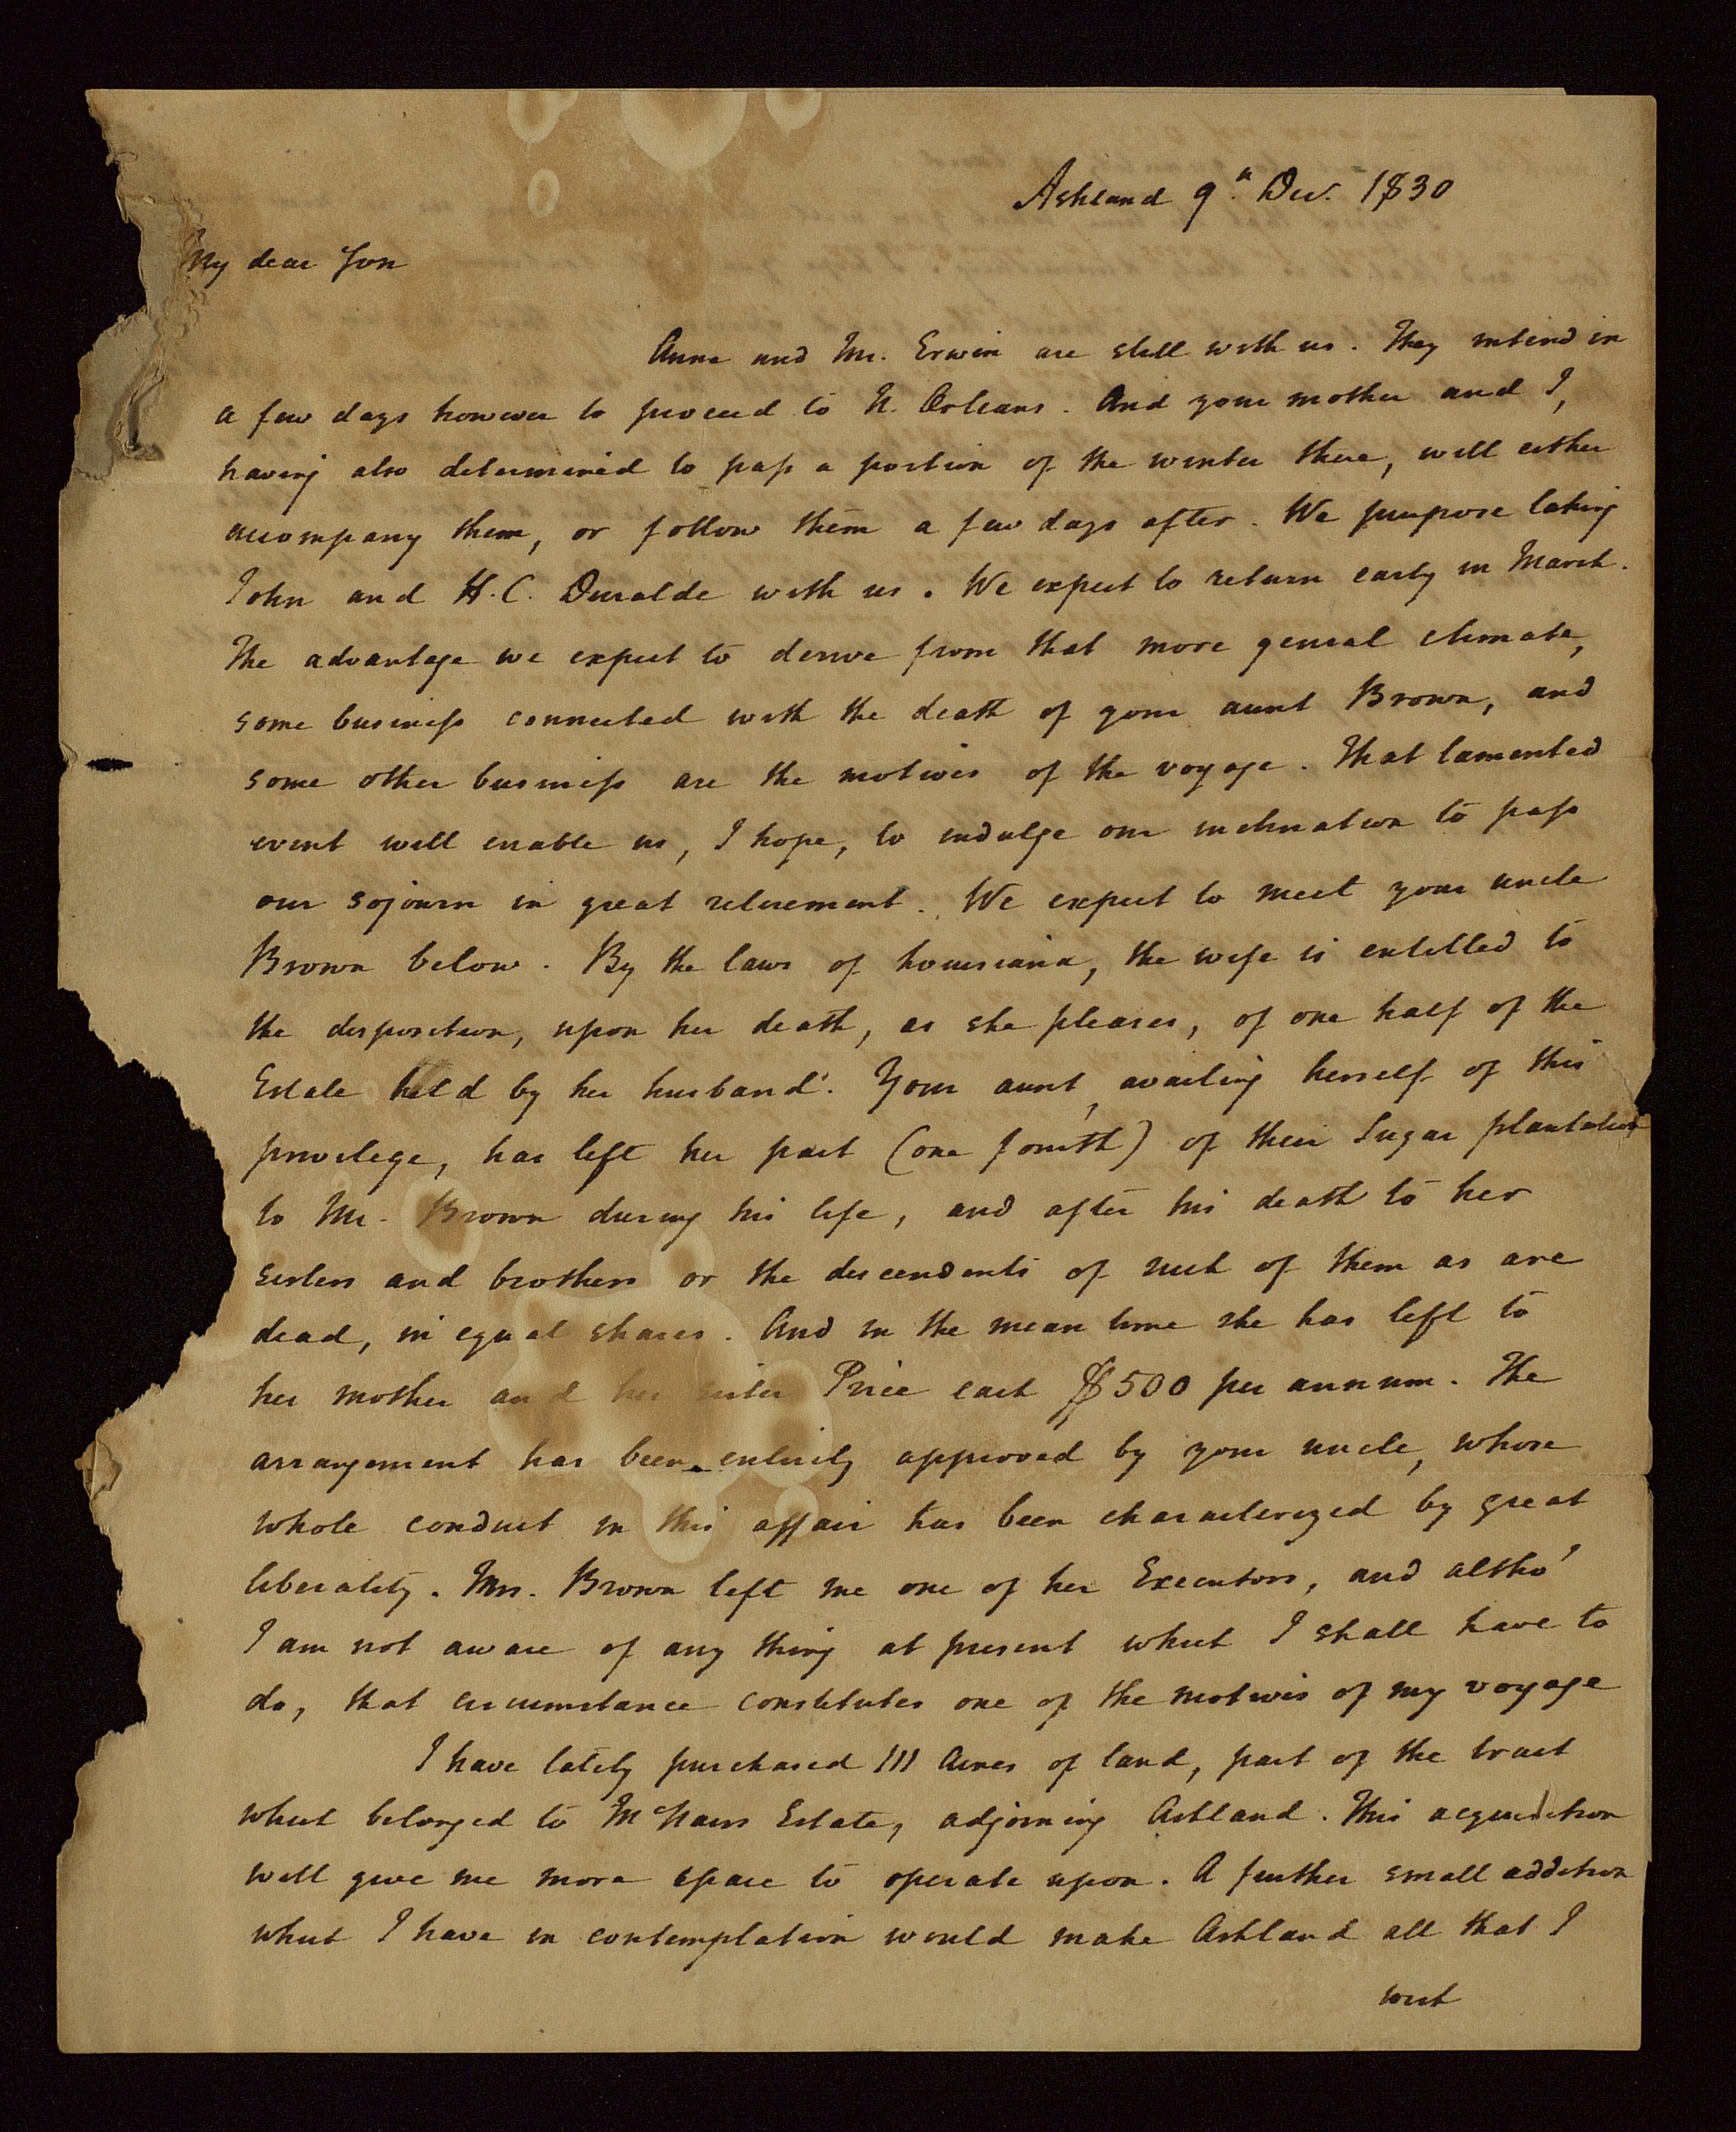 Ashland 9h. Dec. 1830
My dear Son
Anne and Mr. Erwin are still with us. They intend in
a few days however to proceed to N. Orleans. And your mother and I,
having also determined to pass a portion of the winter there, will either
accompany them, or follow them a few days after. We purpose taking
John and H.C. Duralde with us. We expect to return early in March.
The advantage we expect to derive from that more genial climate,
some business connected with the death of your aunt Brown, and
some other business are the motives of the voyage. That lamented
event will enable us, I hope, to indulge our inclination to pass
our sojourn in great retirement. We expect to meet your uncle
Brown below. By the laws of Louisiana, the wife is entitled to
the disposition, upon her death, as she pleases, of one half of the
Estate held by her husband. Your aunt, availing herself of this
privilege, has left her part (one fourth) of their Sugar plantation
to Mr. Brown during his life, and after his death to her
sisters and brothers or the descendents of such of them as are
dead, in equal shares. And in the mean time she has left to
her mother and her sister Price each $500 per annum. The
arrangement has been entirely approved by your uncle, whose
whole conduct in this affair has been characterized by great
liberality. Mrs. Brown left me one of her Executors, and altho'
I am not aware of any thing at present which I shall have to
do, that circumstance constitutes one of the motives of my voyage
I have lately purchased 111 Acres of land, part of the tract
which belonged to McNairs Estate, adjoining Ashland. This acquisition
will give me more space to operate upon. A further small addition
which I have in contemplation would make Ashland all that I
wish